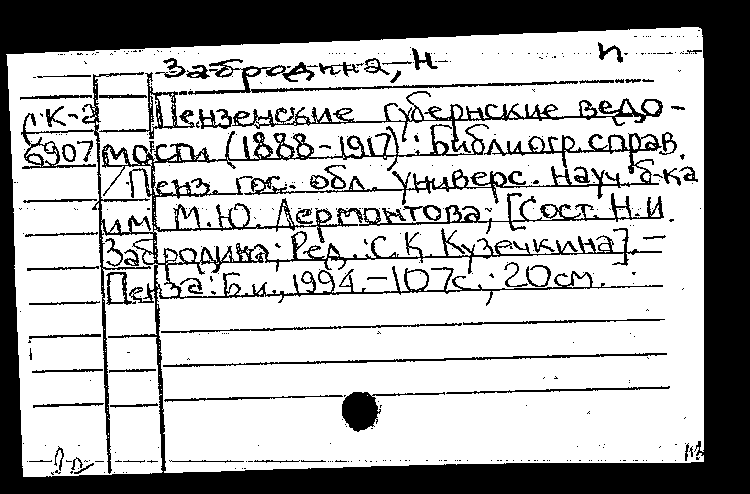 Забродина, Н п
СК-2 Пензенские губернские ведо-
6907 мости (1888-1917) : Библиогр. справ.
/ Пенз. гос. обл. универс. науч. б-ка
им. М.Ю. Лермонтова; [Сост. Н.И.
Забродина; Ред.: С.К. Кузечкина]. –
Пенза: Б.и., 1994. – 107с.; 20см.